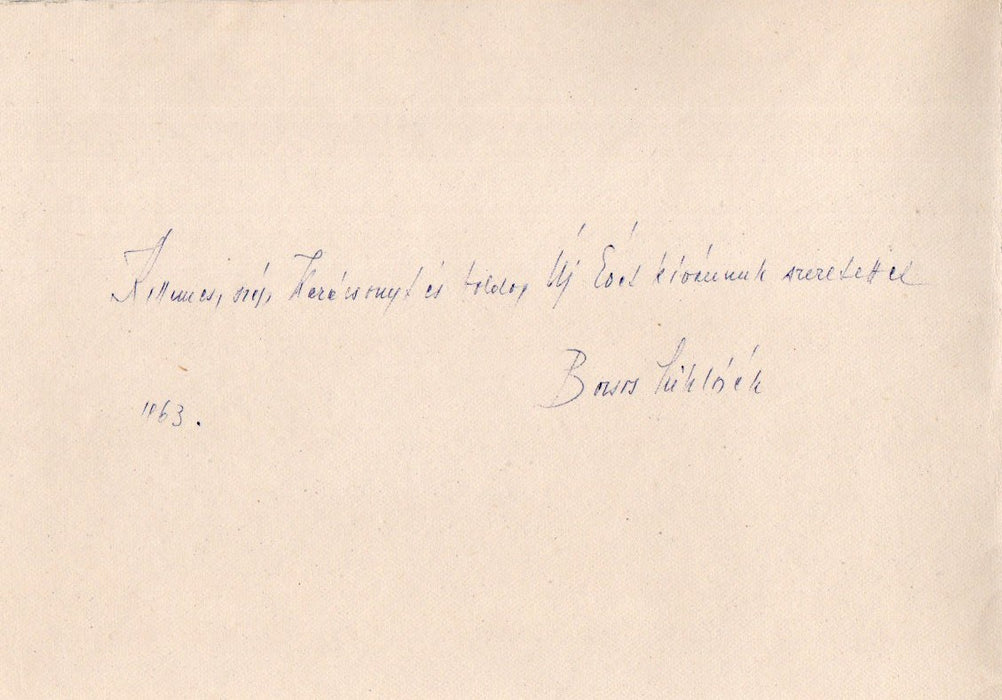 Kellemes, szép Karácsonyt és boldog Új Évet kívánunk szeretettel
Borsos Miklósék
1963.